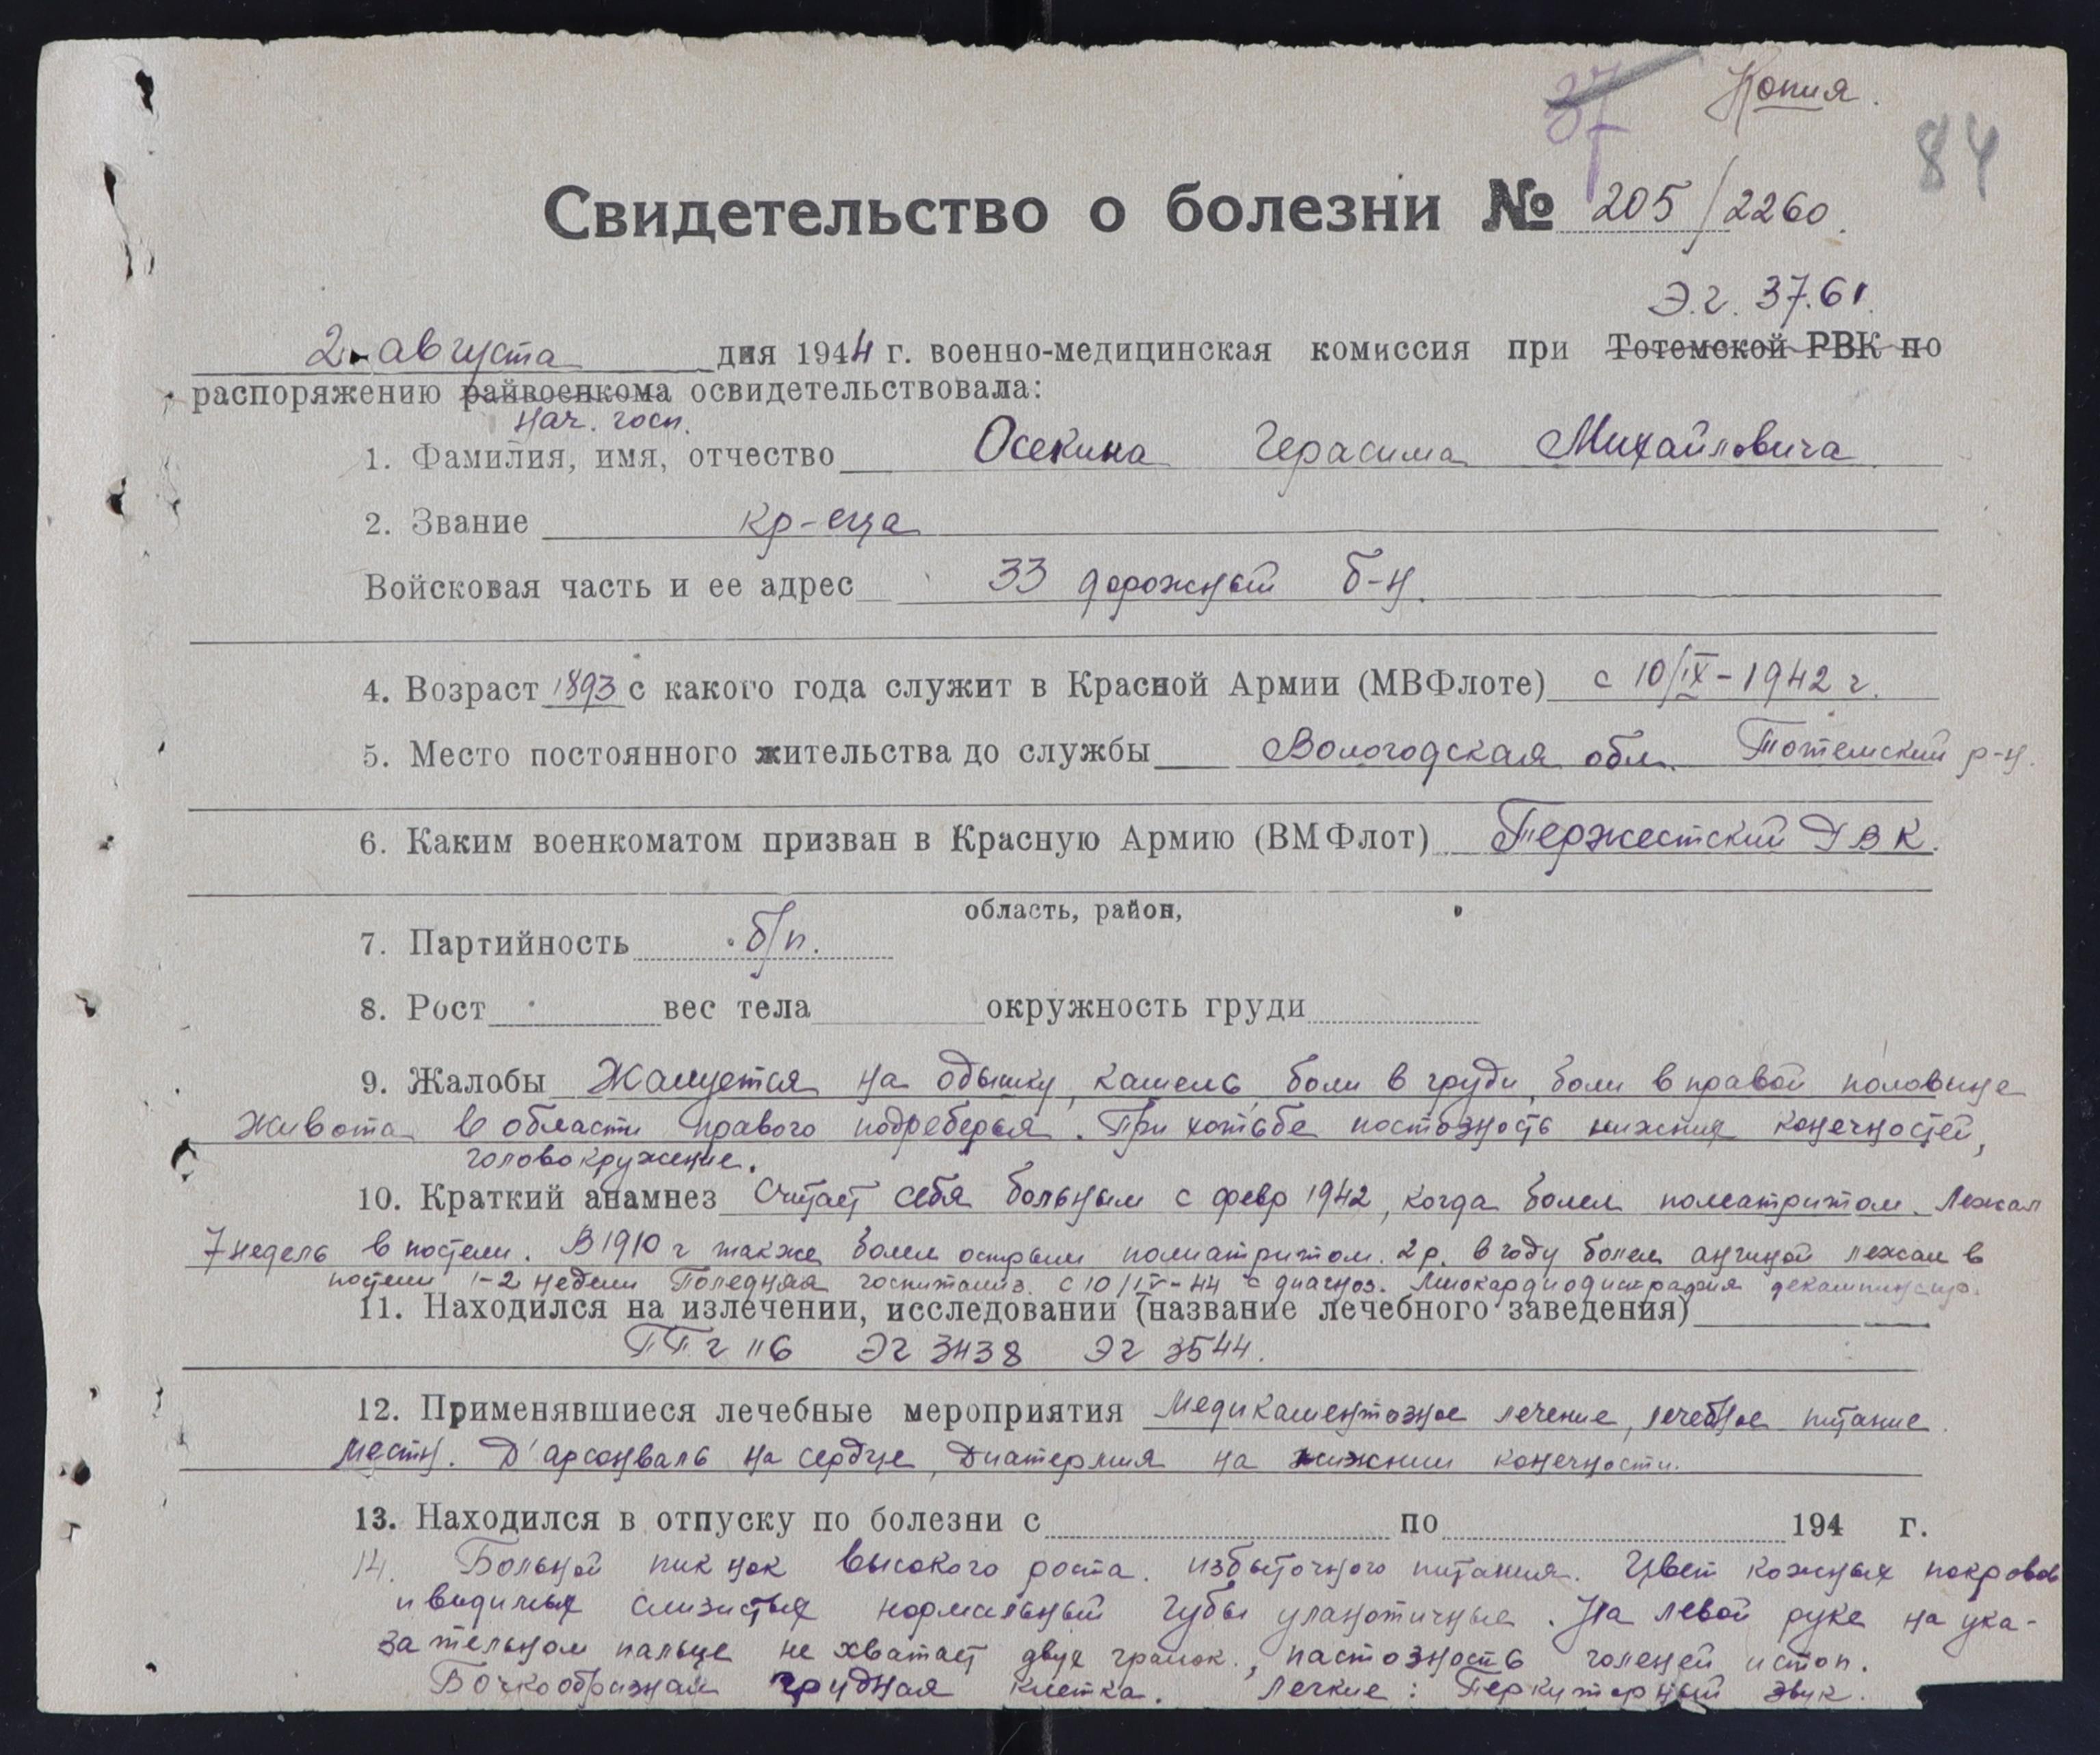 37 Копия.
84
Свидетельство о болезни № 205/2260.
Э.г. 37.61.
2 августа дня 1944 г. военно-медицинская комиссия при Тотемской РВК по
распоряжению райвоенкома освидетельствовала:
нач. госп.
1. Фамилия, имя, отчество Осекина Герасима Михайловича
2. Звание кр-еца
Войсковая часть и ее адрес 33 дорожный б-н.
4. Возраст 1893 с какого года служит в Красной Армии (МВФлоте) с 10/IX-1942 г.
5. Место постоянного жительства до службы Вологодская обл. Тотемский р-н.
6. Каким военкоматом призван в Красную Армию (ВМФлот) ВК.
область, район,
7. Партийность б/п.
8. Рост вес тела окружность груди
9. Жалобы Жалуется на одышку, кашель, боли в груди, боли в правой половине
живота в области правого подреберья. При хотьбе постозность нижних конечностей,
головокружение.
10. Краткий анамнез Считает себя больным с февр 1942, когда болел полиатритом. Лежал
7 недель в постели. В 1910 г также болел острым полиатритом. 2 р. в году болел ангиной лежал в
постели 1-2 недели Последняя госпитализ. с 10/IV-44 с диагноз. Миокардиодистрафия
11. Находился на излечении, исследовании (название лечебного заведения)
ППГ 116 ЭГ 3438 ЭГ 3544.
12. Применявшиеся лечебные мероприятия Медикаментозное лечение, лечебное питание.
Местн. Д'арсонваль на сердце, Диатермия на нижнии конечности.
13. Находился в отпуску по болезни с по 194 г.
14. Больной пикнок высокого роста. избыточного питания. Цвет кожных покровов
и видимых слизистых нормальный губы цианотичные. На левой руке на ука-
зательном пальце не хватает двух , пастозность голеней и стоп.
Бочкообразная грудная клетка. Легкие: Перкуторный звук.